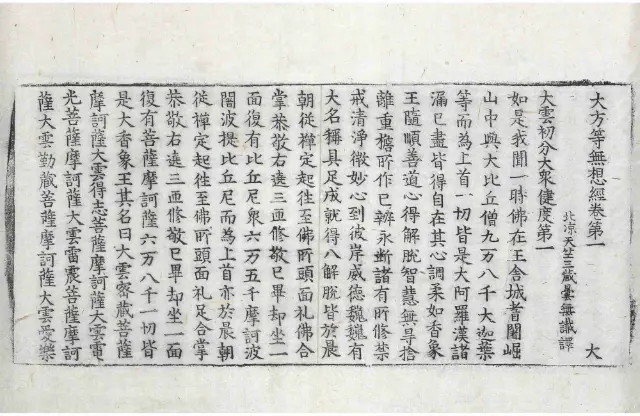 大方等無想經卷第一 大
北涼天竺三藏曇無讖譯
大雲初分大衆健度第一
如是我聞一時佛在王舍城耆闍崛
山中與大比丘僧九万八千大迦葉
等而為上首一切皆是大阿羅漢諸
漏已盡皆得自在其心調柔如香象
王隨順善道心得解脫智慧無㝵捨
離重擔所作已辦永断諸有所修禁
戒清淨微妙心到彼岸威德巍巍有
大名稱具足成就得八解脫皆於晨
朝從禪定起往至佛所頭面礼佛合
掌恭敬右遶三匝修敬已畢却坐一
面復有比丘尼衆六万五千摩訶波
闍波提比丘尼而為上首亦於晨朝
從禪定起往至佛所頭面礼足合掌
恭敬右遶三匝修敬已畢却坐一面
復有菩薩摩訶薩六万八千一切皆
是大香象王其名曰大雲密藏菩薩
摩訶薩大雲得志菩薩摩訶薩大雲電
光菩薩摩訶薩大雲雷震菩薩摩訶
薩大雲勤藏菩薩摩訶薩大雲愛樂